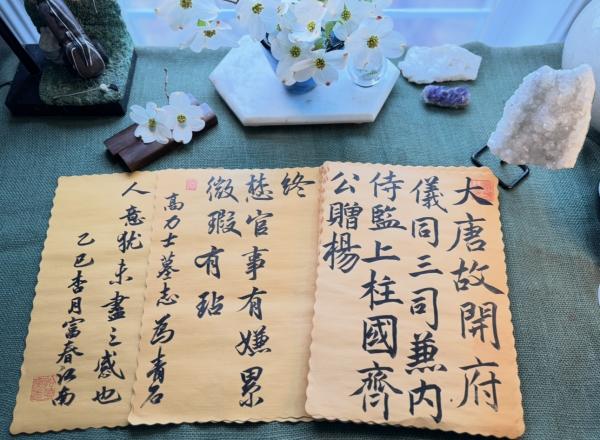 大唐故開府
儀同三司兼内
侍監上柱國齊
公贈楊
終
愆官事有嫌累
微瑕有玷
高力士墓志為
人意犹未盡之感也
乙巳杏月富春江南